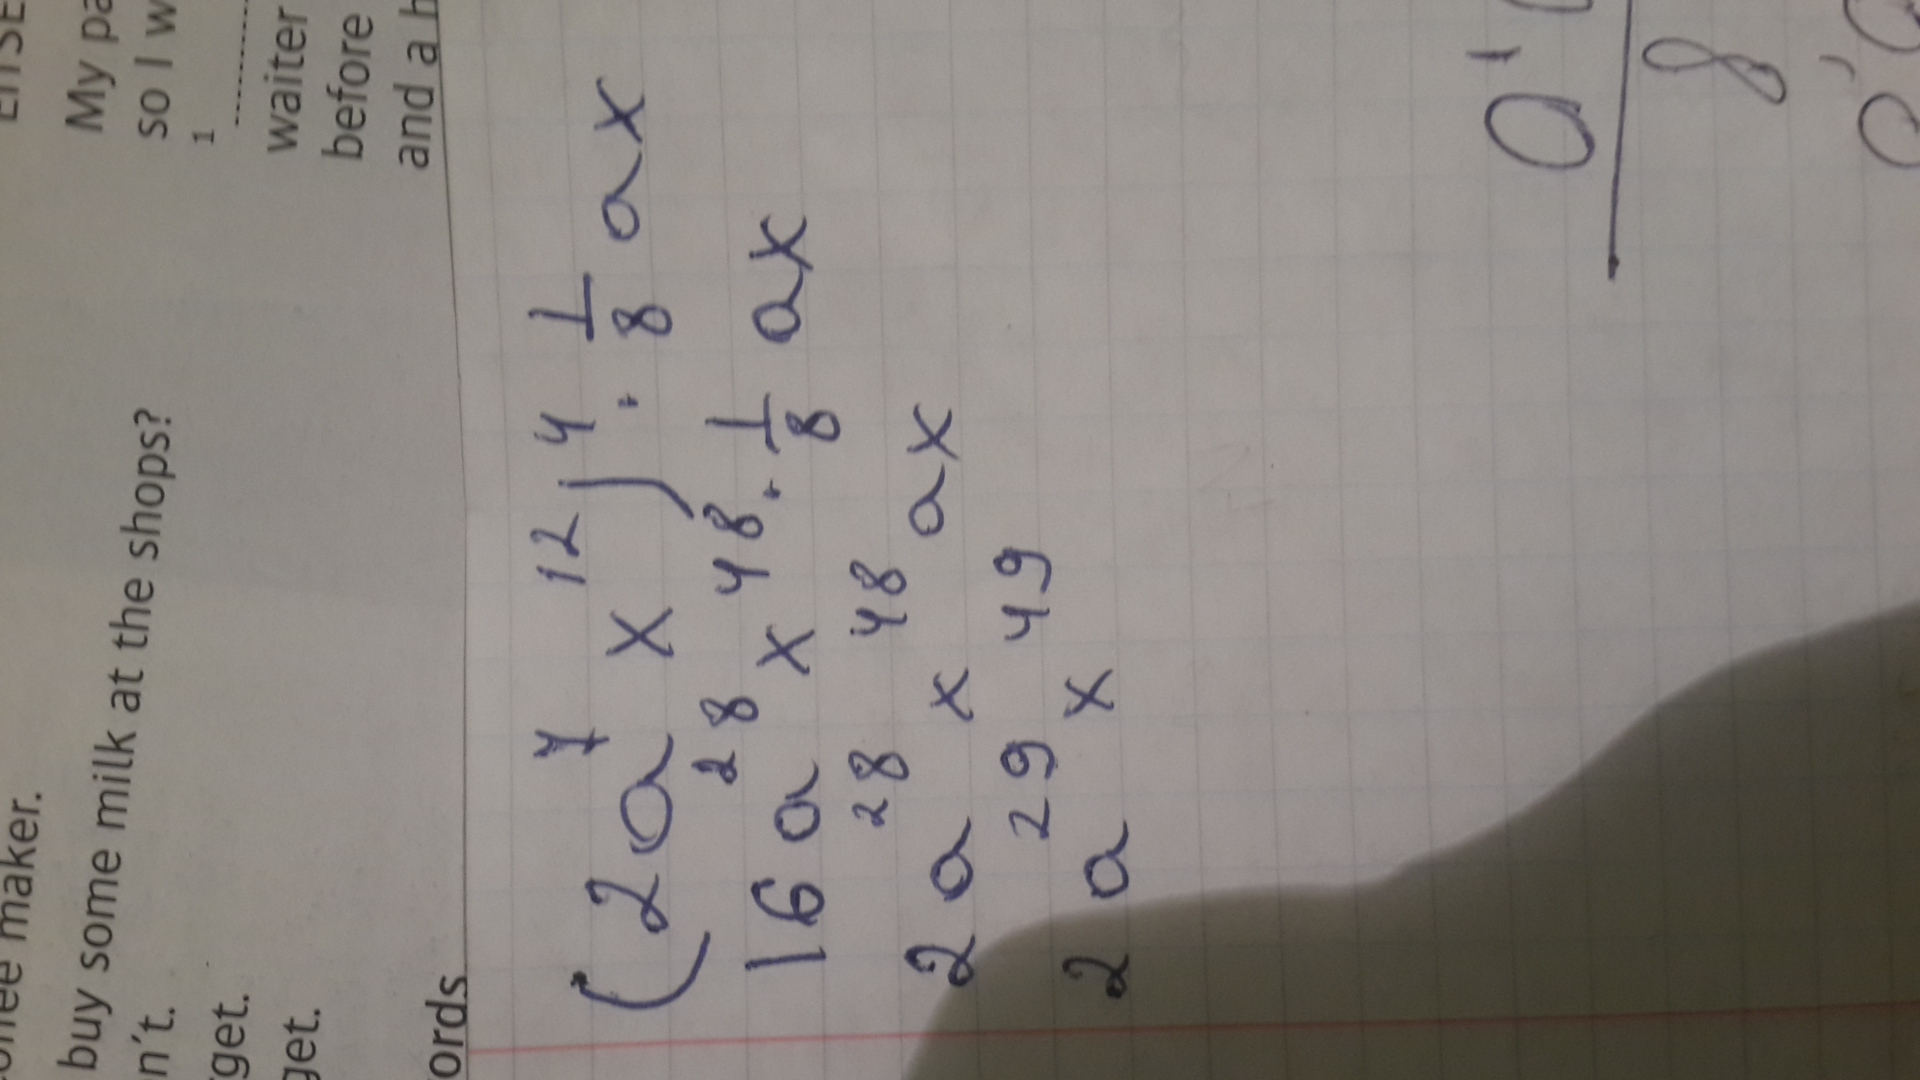 onee maker.
buy some milk at the shops?
n't.
get.
get.
ords
My pa
so I w
1
waiter
before
and a h
(2a⁷x¹²)⁴ · 1/8 ax
16a²⁸x⁴⁸ · 1/8 ax
2a²⁸x⁴⁸ax
2a²⁹x⁴⁹
8